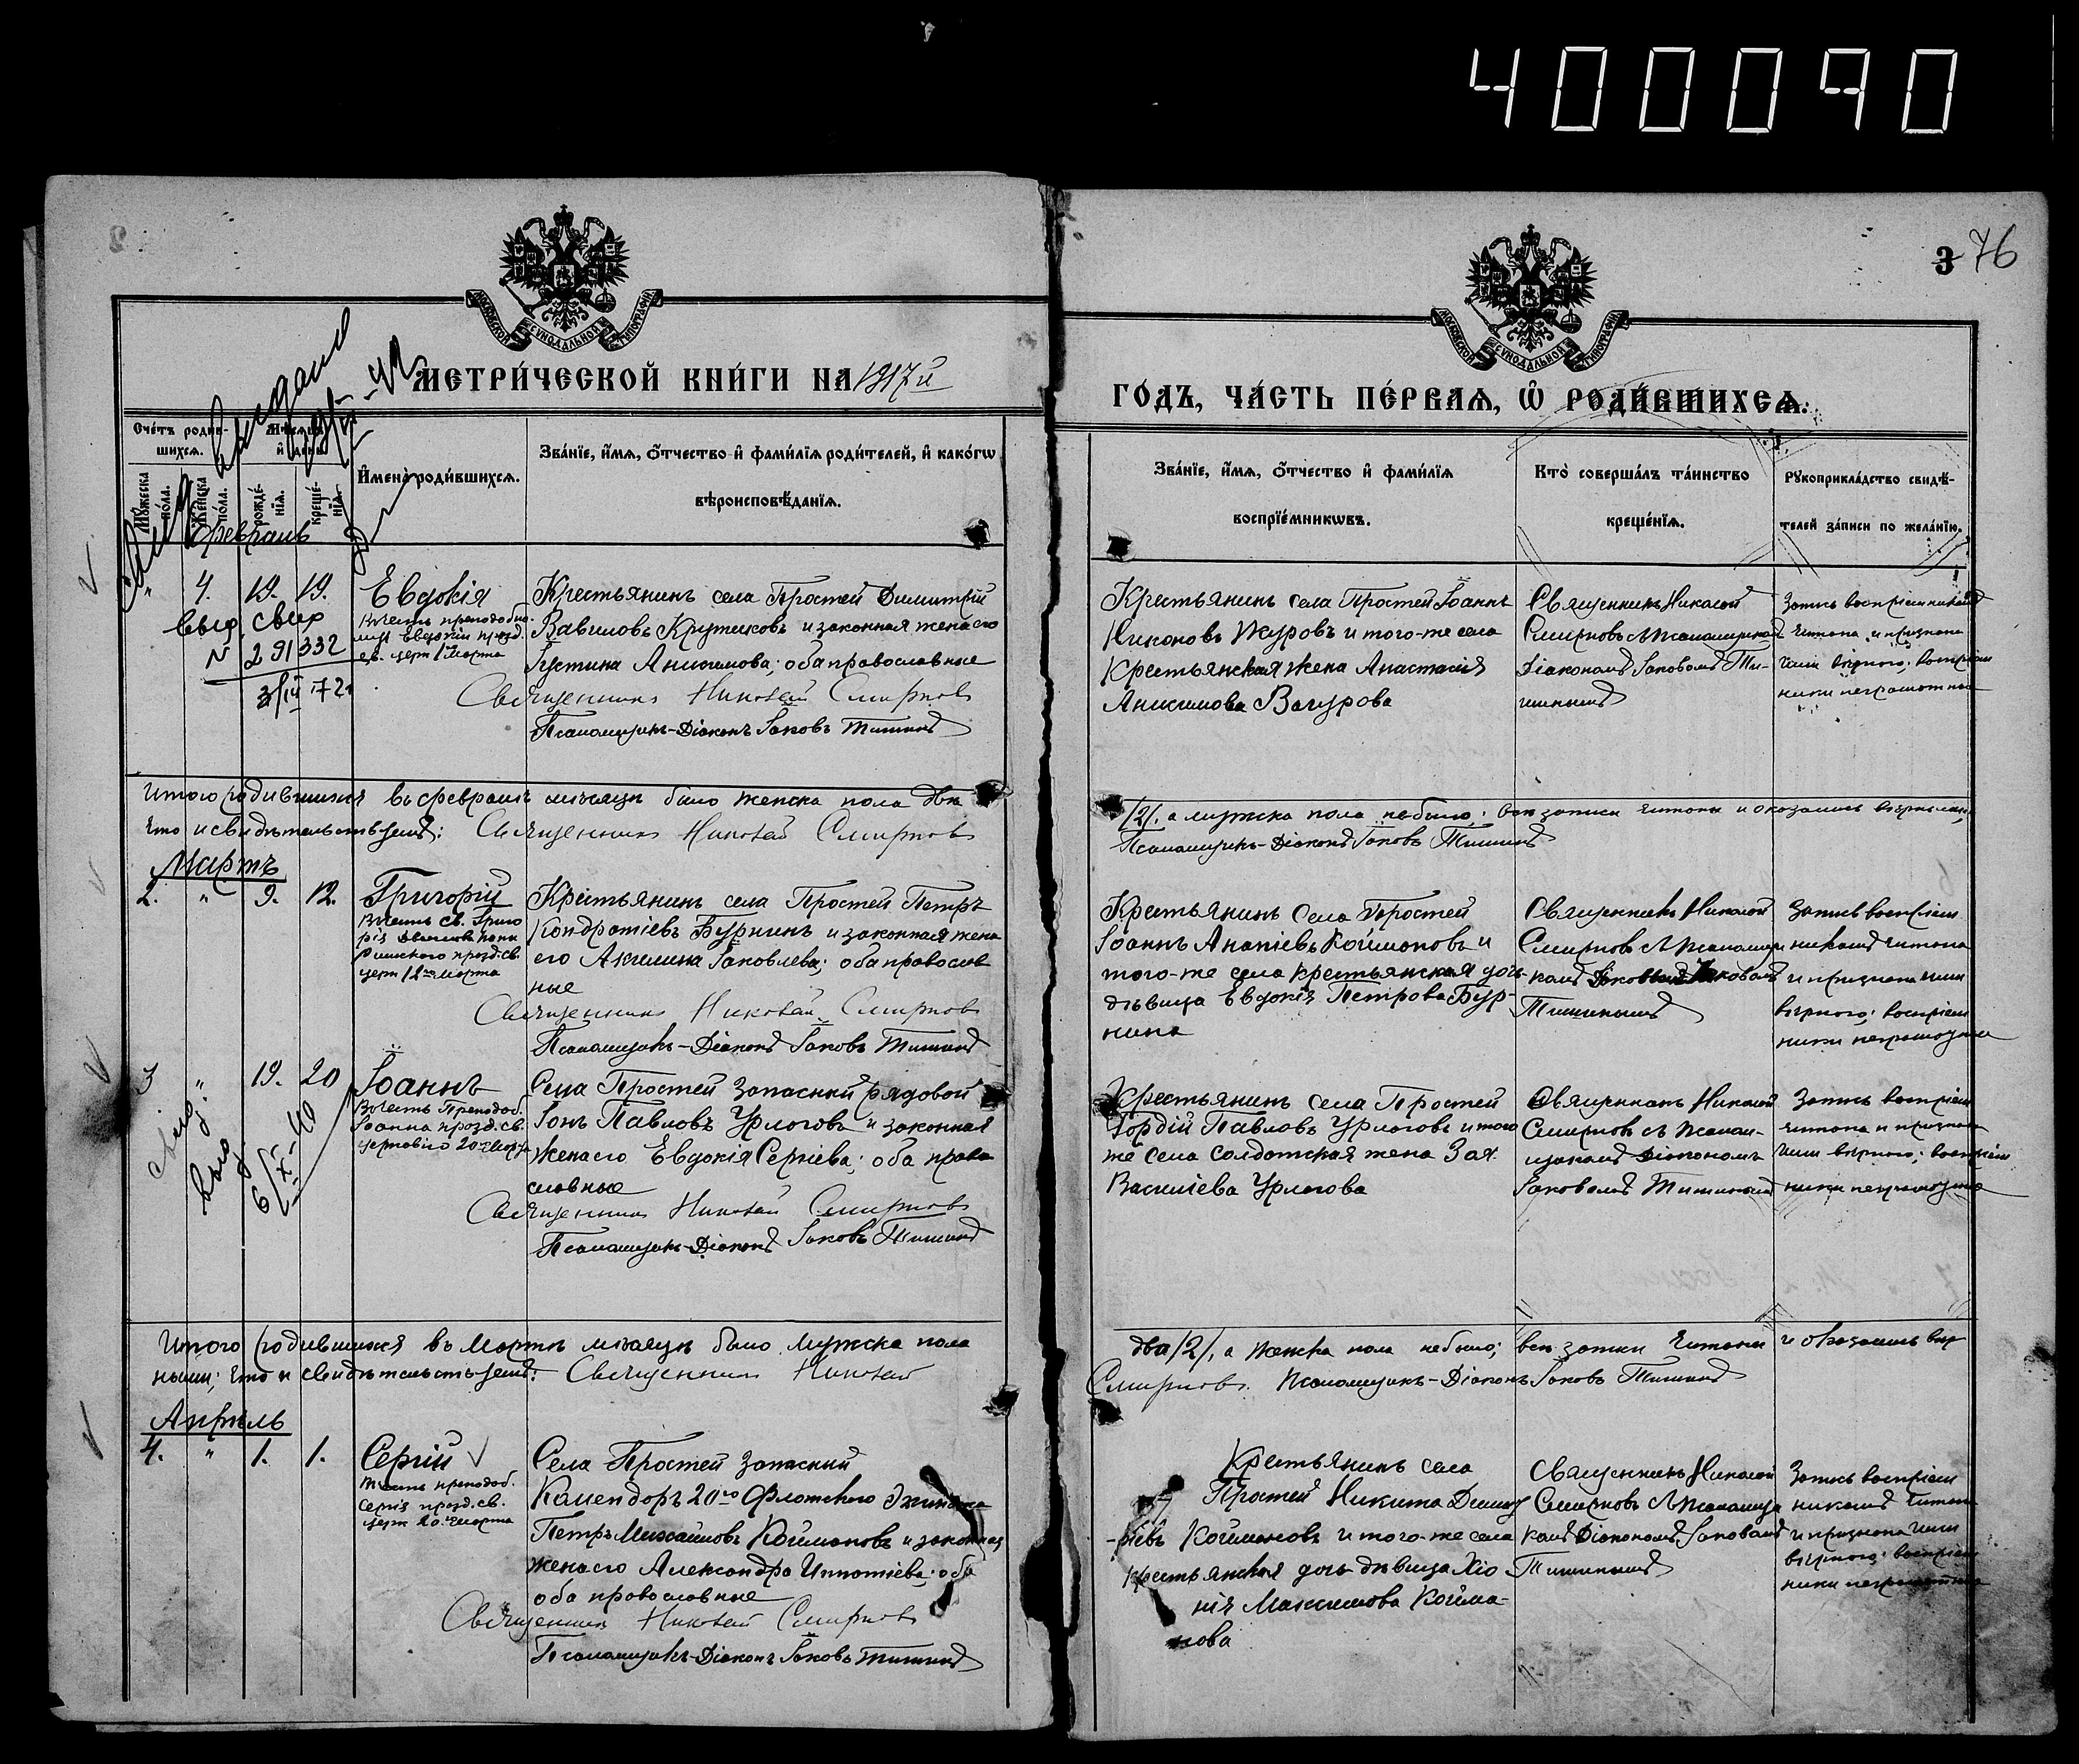 400090
3 76
МОСКОВСКОЙ СУНОДАЛЬНОЙ ТИПОГРАФІИ
МОСКОВСКОЙ СУНОДАЛЬНОЙ ТИПОГРАФІИ
МЕТРИ́ЧЕСКОЙ КНИ́ГИ НА 1917й
ГО́ДЪ, ЧА́СТЬ ПЕ́РВАЯ, Ѡ҆ РОДИ́ВШИХСЯ.
Сче́тъ роди́в-
шихся.
Мѣсяцъ
и҆ день
Му́жеска
по́ла.
Же́нска
по́ла.
рожде́-
нїѧ.
креще́-
нїѧ.
И҆мена̀ роди́вшихсѧ.
Зва́нїе, и҆́мѧ, ѻ҆́тчество и҆ фами́лїѧ роди́телей, и҆ како́гѡ
вѣроисповѣ́данїѧ.
Зва́нїе, и҆́мѧ, ѻ҆́тчество и҆ фами́лїѧ
воспрїе́мникѡвъ.
Кто̀ соверша́лъ та́инство
креще́нїѧ.
Рꙋкоприкла́дство свидѣ́-
телей за́писи по жела́нїю.
Февраль
" 4. 19. 19.
Выд. свид
N 291332
3/III 72.
Евдокія
Въ честь преподобно-
муч. Евдокіи празд.
св. церк 1 марта
Крестьянинъ села Простей Димитрій
Вавиловъ Крутиковъ и законная жена его
Іустина Анисимова; оба православные
Священникъ Николай Смирновъ
Псаломщикъ-Діаконъ Іаковъ Тишинъ
Крестьянинъ села Простей Іоаннъ
Никоновъ Журовъ и того-же села
Крестьянская жена Анастасія
Анисимова Вагурова
Священникъ Николай
Смирновъ съ псаломщикомъ
Діакономъ Іаковомъ Ти-
шинымъ
Запись воспріемниками
читана и признана
ими вѣрною; воспріем
ники неграмотные
Итого родившихся въ февралѣ мѣсяцѣ было женска пола два
/2/, а мужска пола не было; всѣ записи читаны и оказались вѣрными,
что и свидѣтельствуемъ: Священникъ Николай Смирновъ
Псаломщикъ-Діаконъ Іаковъ Тишинъ
Мартъ
2. " 9. 12.
Григорій
Въ честь св. Григо
рія Двоеслова папы
Римскаго празд. св.
церк 12го марта
Крестьянинъ села Простей Петръ
Кондратіевъ Бурнинъ и законная жена
его Акилина Іаковлева; оба православ
ные
Священникъ Николай Смирновъ
Псаломщикъ-Діаконъ Іаковъ Тишинъ
Крестьянинъ села Простей
Іоаннъ Ананіевъ Коймановъ и
того-же села крестьянская дочь
дѣвица Евдокія Петрова Бур-
нина
Священникъ Николай
Смирновъ съ псаломщи
комъ Іаковомъ
Тишинымъ
Запись воспріем
никами читана
и признана ими
вѣрною; воспріем
ники неграмотные
3 " 19. 20
6/X-40
Іоаннъ
Въ честь Преподоб.
Іоанна празд. св.
церковію 20го марта
Села Простей запасный рядовой
Іонъ Павловъ Урлоговъ и законная
жена его Евдокія Сергіева; оба право
славные
Священникъ Николай Смирновъ
Псаломщикъ-Діаконъ Іаковъ Тишинъ
Крестьянинъ села Простей
Гордій Павловъ Урлоговъ и того
же села солдатская жена Зоя
Василіева Урлогова
Священникъ Николай
Смирновъ съ псалом-
щикомъ Діакономъ
Іаковомъ Тишинымъ
Запись воспріем
читана и признана
ими вѣрною; воспріем
ники неграмотные
Итого родившихся въ Мартѣ мѣсяцѣ было мужска пола
два /2/, а женска пола не было; всѣ записи читаны и оказались вѣр
ными; что и свидѣтельствуемъ: Священникъ Николай
Смирновъ. Псаломщикъ-Діаконъ Іаковъ Тишинъ
Апрѣль
4. " 1. 1.
Сергій
Въ честь преподоб.
Сергія празд. св.
церк 20го марта
Села Простей запасный
Комендоръ 20го Флотского Экипажа
Петръ Михайловъ Коймановъ и законная
жена его Александра Игнатіева; оба
оба православные
Священникъ Николай Смирновъ
Псаломщикъ-Діаконъ Іаковъ Тишинъ
Крестьянинъ села
Простей Никита Димит
-ріевъ Коймановъ и того-же села
крестьянская дочь дѣвица Хіо
нія Максимова Койма-
нова
Священникъ Николай
Смирновъ съ псаломщи
комъ Діакономъ Іаковомъ
Тишинымъ
Запись воспріем
никами читана
и признана ими
вѣрною; воспріем
ники неграмотные